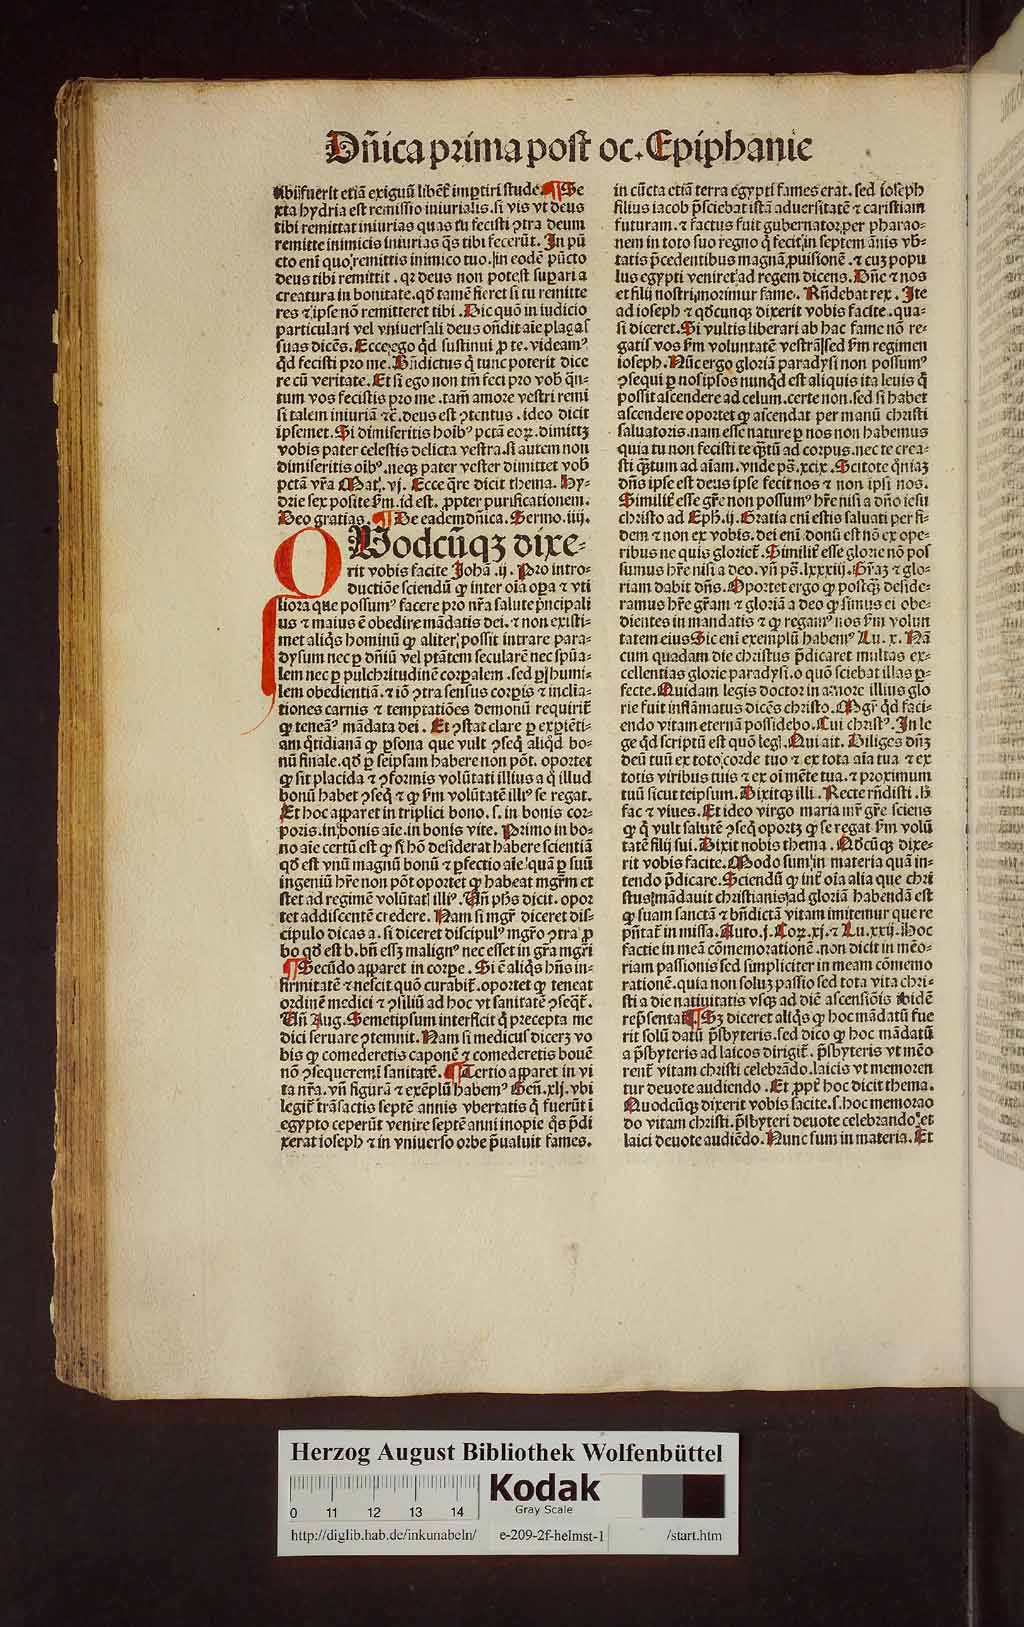 Dñica prima post oc. Epiphanie
ibi fuerit etiã exiguũ libẽt impartiri stude. ¶ Se
xta hydria est remissio iniuriaꝝ. si vis vt deus
tibi remittat iniurias quas tu fecisti ꝯtra deum
remitte inimicis iniurias q̃s tibi fecerũt. In pũ
cto eni quo remittis inimico tuo. in eodẽ pũcto
deus tibi remittit. qꝛ deus non potest suꝑari a
creatura in bonitate. qđ tamẽ fieret si tu remitte
res ⁊ ipse nõ remitteret tibi. Hic quõ in iudicio
particulari vel vniuersali deus oñdit aĩe plagas
suas dicẽs. Ecce ego qđ sustinui ꝓ te. videamꝰ
qđ fecisti pro me. Bñdictus q̃ tunc poterit dice
re cũ veritate. Et si ego non tm̃ feci pro vob̃ q̃n⸗
tum vos fecistis pro me. tam̃ amore vestri remi
si talem iniuriã ⁊c̃. deus est ꝯtentus. ideo dicit
ipsemet. Si dimiseritis hoĩbꝰ pctã eoꝝ. dimittꝫ
vobis pater celestis delicta vestra. si autem non
dimiseritis oĩbꝰ. neqꝫ pater vester dimittet vob̃
pctã vr̃a Mat. vj. Ecce q̃re dicit thema. Hy⸗
drie sex posite ẜm. id est. ꝓpter purificationem.
Deo gratias. ¶ De eadem dñica. Sermo. iiij.
QUodcũqꝫ dixe⸗
rit vobis facite Johã. ij. Pro intro⸗
ductiõe sciendũ ꝙ inter oĩa oꝑa ⁊ vti
liora que possumꝰ facere pro nr̃a salute p̃ncipali
us ⁊ maius ẽ obedire mãdatis dei. ⁊ non existi⸗
met aliq̃s hominũ ꝙ aliter possit intrare para⸗
dysum nec ꝑ dñiũ vel ptãtem secularẽ nec spũa⸗
lem nec ꝑ pulchritudinẽ corꝑalem. sed ꝑ humi⸗
lem obedientiã. ⁊ iõ ꝯtra sensus corꝑis ⁊ inclia⸗
tiones carnis ⁊ temptatiões demonũ requirit̃
ꝙ teneaꝰ mãdata dei. Et ꝯstat clare ꝑ exꝑiẽti⸗
am q̃tidianã ꝙ ꝑsona que vult ꝯseq̃ aliqđ bo⸗
nũ finale. qđ ꝑ seipsam habere non põt. oportet
ꝙ sit placida ⁊ ꝯformis volũtati illius a q̃ illud
bonũ habet ꝯseq̃ ⁊ ꝙ ẜm volũtatẽ illiꝰ se regat.
Et hoc apparet in triplici bono. s. in bonis cor⸗
poris. in bonis aĩe. in bonis vite. Primo in bo⸗
no aĩe certũ est ꝙ si hõ desiderat habere scientiã
qđ est vnũ magnũ bonũ ⁊ ꝑfectio aĩe quã ꝑ suũ
ingeniũ hr̃e non põt oportet ꝙ habeat mgr̃m et
stet ad regimẽ volũtatꝭ illiꝰ. Un̄ ph̃s dicit. opor
tet addiscentẽ credere. Nam si mgr̃ diceret dis⸗
cipulo dicas a. si diceret discipulꝰ mgr̃o ꝯtra ꝓ
bo qđ est b. bñ essꝫ malignꝰ nec esset in gr̃a mgr̃i
¶ Secũdo apparet in corꝑe. Si ẽ aliq̃s hñs in⸗
firmitatẽ ⁊ nescit quõ curabit̃. oportet ꝙ teneat
ordinẽ medici ⁊ ꝯsiliũ ad hoc vt sanitatẽ ꝯseq̃t̃.
Un̄ Aug. Semetipsum interficit q̃ precepta me
dici seruare ꝯtemnit. Nam si medicus dicerꝫ vo
bis ꝙ comederetis caponẽ ⁊ comederetis bouẽ
nõ ꝯsequeremĩ sanitatẽ. ¶ Tertio apparet in vi
ta nr̃a. vn̄ figurã ⁊ exẽplũ habemꝰ Gen̄. xlj. vbi
legit̃ trãsactis septẽ annis vbertatis q̃ fuerũt i
egypto ceperũt venire septẽ anni inopie q̃s p̃di
xerat ioseph ⁊ in vniuerso orbe p̃ualuit fames.
in cũcta etiã terra egypti fames erat. sed ioseph
filius iacob p̃sciebat istã aduersitatẽ ⁊ caristiam
futuram. ⁊ factus fuit gubernator ꝑ pharao⸗
nem in toto suo regno q̃ fecit in septem ãnis vb̃⸗
tatis p̃cedentibus magnã ꝓuisionẽ. ⁊ cuꝫ popu
lus egypti veniret ad regem dicens. Dñe ⁊ nos
et filij nostri morimur fame. Rñdebat rex. Ite
ad ioseph ⁊ qđcunqꝫ dixerit vobis facite. qua⸗
si diceret. Si vultis liberari ab hac fame nõ re⸗
gatis vos ẜm voluntatẽ vestrã sed ẜm regimen
ioseph. Nũc ergo gloriã paradysi non possumꝰ
ꝯsequi ꝑ nosipsos nunqđ est aliquis ita leuis q̃
possit ascendere ad celum. certe non. sed si habet
ascendere oportet ꝙ ascendat per manũ christi
saluatoris. nam esse nature ꝑ nos non habemus
quia tu non fecisti te q̃ꝫtũ ad corpus. nec te crea⸗
sti q̃ꝫtum ad aĩam. vnde ps̃. xcix. Scitote q̃niaꝫ
dñs ipse est deus ipse fecit nos ⁊ non ipsi nos.
Similit̃ esse gr̃e non possumꝰ hr̃e nisi a dño iesu
christo ad Eph̃. ij. Gratia eni estis saluati per fi⸗
dem ⁊ non ex vobis. dei eni donũ est nõ ex ope⸗
ribus ne quis gloriet̃. Similit̃ esse glorie nõ pos
sumus hr̃e nisi a deo. vn̄ ps̃. lxxxiij. Gr̃aꝫ ⁊ glo⸗
riam dabit dñs. Oportet ergo ꝙ postq̃ꝫ deside⸗
ramus hr̃e gr̃am ⁊ gloriã a deo ꝙ simus ei obe⸗
dientes in mandatis ⁊ ꝙ regamꝰ nos ẜm volun
tatem eius Sic eni exemplũ habemꝰ Lu. x. Nã
cum quadam die christus p̃dicaret multas ex⸗
cellentias glorie paradysi. o quõ sciebat illas ꝑ⸗
fecte. Quidam legis doctor in amore illius glo
rie fuit inflãmatus dicẽs christo. Mgr̃ qđ faci⸗
endo vitam eternã possidebo. Cui christꝰ. In le
ge qđ scriptũ est quõ legꝭ. Qui ait. Diliges dñꝫ
deũ tuũ ex toto corde tuo ⁊ ex tota aĩa tua ⁊ ex
totis viribus tuis ⁊ ex oĩ mẽte tua. ⁊ proximum
tuũ sicut teipsum. Dixitqꝫ illi. Recte rñdisti. h̃
fac ⁊ viues. Et ideo virgo maria mr̃ gr̃e sciens
ꝙ q̃ vult salutẽ ꝯseq̃ oportꝫ ꝙ se regat ẜm volũ
tatẽ filij sui. Dixit nobis thema. Qđcũqꝫ dixe⸗
rit vobis facite. Modo sum in materia quã in⸗
tendo p̃dicare. Sciendũ ꝙ int̃ oĩa alia que chri
stus mãdauit christianis ad gloriã habendã est
ꝙ suam sanctã ⁊ bñdictã vitam imitemur que re
pñtat̃ in missa. Auto. j. Coꝝ. xj. ⁊ Lu. xxij. Hoc
facite in meã cõmemorationẽ. non dicit in mẽo⸗
riam passionis sed simpliciter in meam cõmemo
rationẽ. quia non soluꝫ passio sed tota vita chri⸗
sti a die natiuitatis vsqꝫ ad diẽ ascensiõis ibidẽ
rep̃sentat̃. ¶ Sꝫ diceret aliq̃s ꝙ hoc mãdatũ fue
rit solũ datũ p̃sbyteris. sed dico ꝙ hoc mãdatũ
a p̃sbyteris ad laicos dirigit̃. p̃sbyteris vt mẽo
rent̃ vitam christi celebrãdo. laicis vt memoren
tur deuote audiendo. Et ꝓpt̃ hoc dicit thema.
Quodcũqꝫ dixerit vobis facite. s. hoc memorao
do vitam christi. p̃sbyteri deuote celebrando. et
laici deuote audiẽdo. Nunc sum in materia. Et
Herzog August Bibliothek Wolfenbüttel
Kodak
Gray Scale
0 11 12 13 14
http://diglib.hab.de/inkunabeln/ e-209-2f-helmst-1 /start.htm